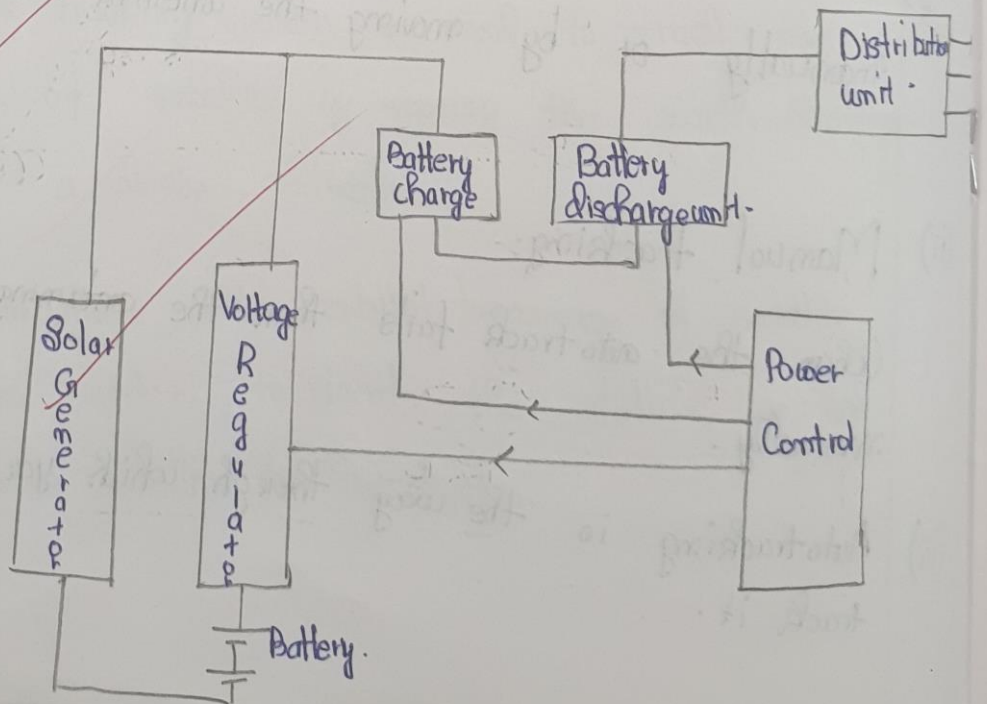 Distribution
unit.
Battery
charge
Battery
dischargeunit.
Solar
Generator
Voltage
Regulator
Power
Control
Battery.